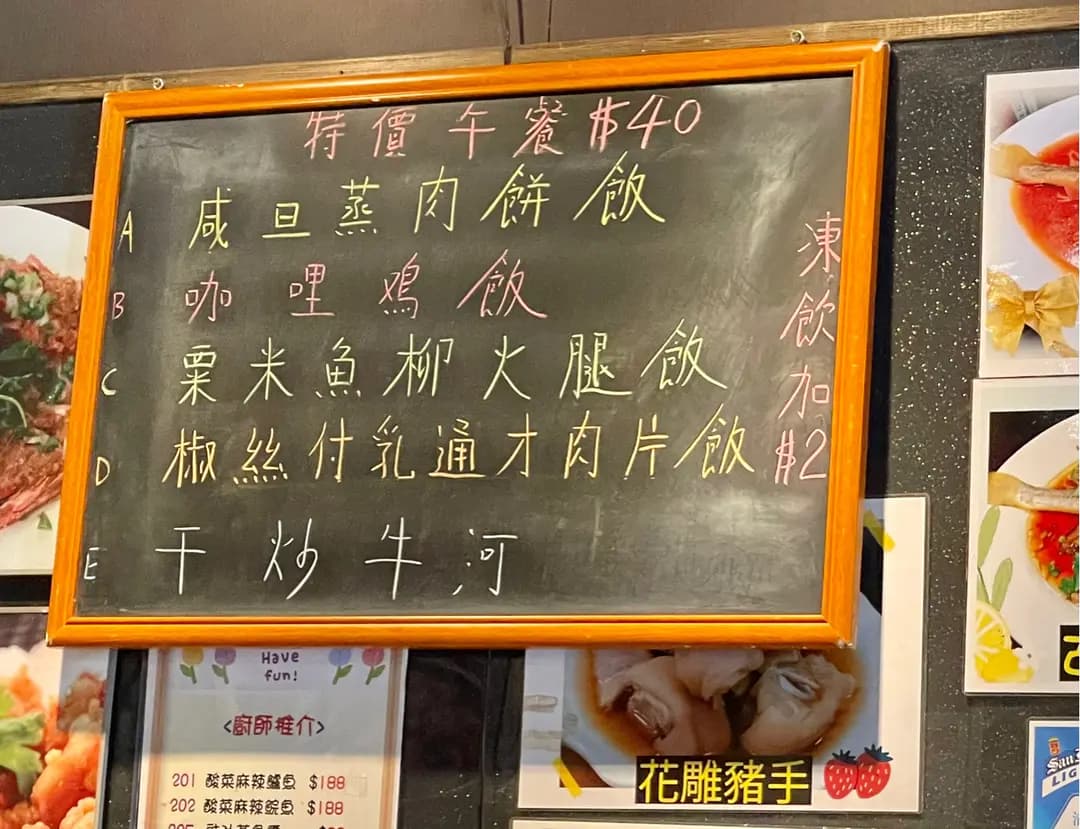 特價午餐$40
A 咸旦蒸肉餅飯
B 咖哩鳮飯
C 粟米魚柳火腿飯
D 椒絲付乳通才肉片飯
E 干炒牛河
凍飲加$2
Have
fun!
<廚師推介>
201 酸菜麻辣鱸魚 $188
202 酸菜麻辣鯇魚 $188
花雕豬手
San
LIG